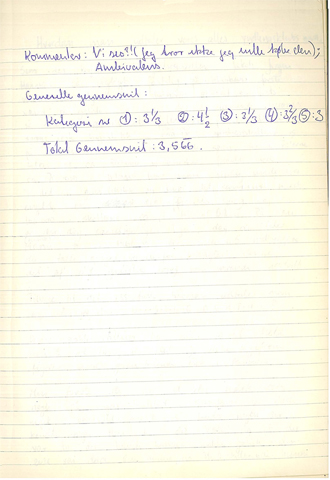 Kommentar: Vi se?!! (jeg tror ikke jeg ville købe den);
Ambivalens.
Generelle gennemsnit:
Kategori nr ①: 3 1/3 ②: 4 1/2 ③: 3 1/3 ④: 3 2/3 ⑤: 3
Total Gennemsnit: 3,566.